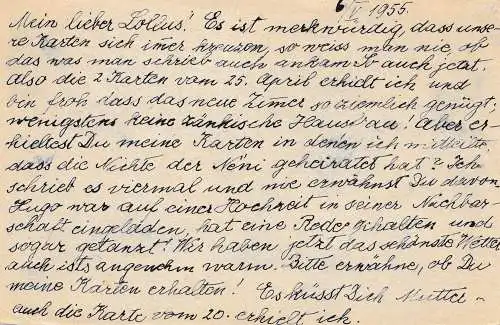 6/V 1955.
Mein lieber Loldus! Es ist merkwürdig, dass unse-
re Karten sich imer kreuzen, so weiss man nie ob
das was man schrieb auch ankam. So auch jetzt.
Also die 2 Karten vom 25. April erhielt ich und
bin froh dass das neue Zimer so ziemlich genügt,
wenigstens keine zänkische Hausfrau! Aber er-
hieltest Du meine Karten in denen ich mitteilte
dass die Nichte der Néni geheiratet hat? Ich
schrieb es viermal und nie erwähnst Du davon.
Hugo war auf einer Hochzeit in seiner Nachbar-
schaft eingeladen, hat eine Rede gehalten und
sogar getanzt! Wir haben jetzt das schönste Wetter
auch ists angenehm warm. Bitte erwähne, ob Du
meine Karten erhalten! Es küsst Dich Mutter
auch die Karte vom 20. erhielt ich.